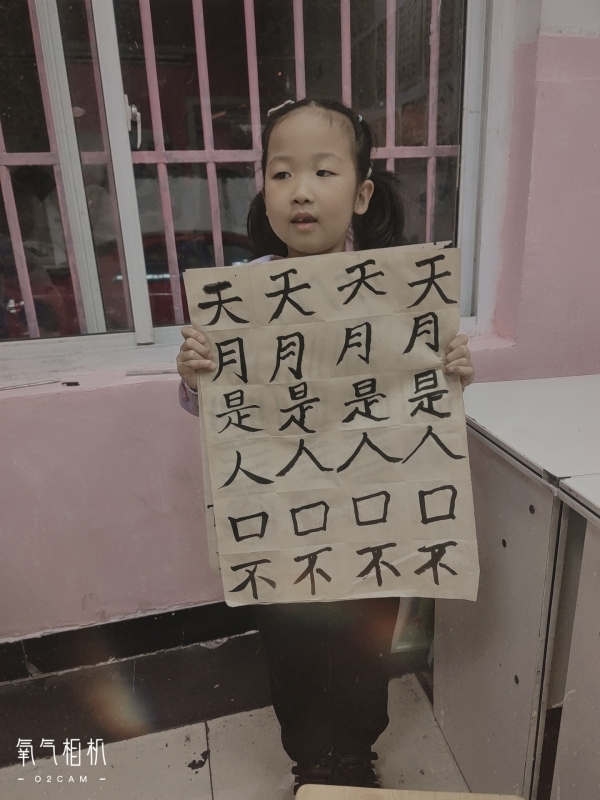 天天天天
月月月月
是是是是
人人人人
口口口口
不不不不
氧气相机
O2CAM